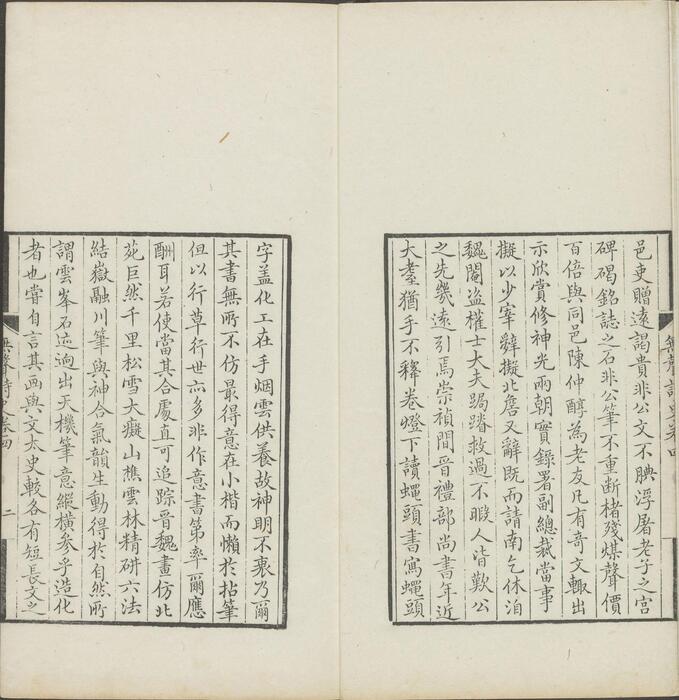 邑吏贈遠謁貴非公文不腆浮屠老子之宮
碑碣銘誌之石非公筆不重断楮殘煤聲價
百倍與同邑陳仲醇為老友凡有奇文輙出
示欣賞修神光兩朝實錄署副總裁當事
擬以少宰辭擬北詹又辭既而請南乞休洎
魏閹盜權士大夫跼蹐救過不暇人皆歎公
之先幾遠引焉崇禎間晉禮部尚書年近
大耋猶手不釋卷燈下讀蠅頭書寫蠅頭
無聲詩史卷四
字盖化工在手烟雲供養故神明不衰乃爾
其書無所不仿最得意在小楷而懶於拈筆
但以行草行世亦多非作意書第率爾應
酬耳若使當其合處直可追踪晉魏畫仿北
苑巨然千里松雪大癡山樵雲林精研六法
結嶽融川筆與神合氣韻生動得於自然所
謂雲峯石迹迥出天機筆意縱橫參乎造化
者也嘗自言其画與文太史較各有短長文之
無聲詩史卷四
二